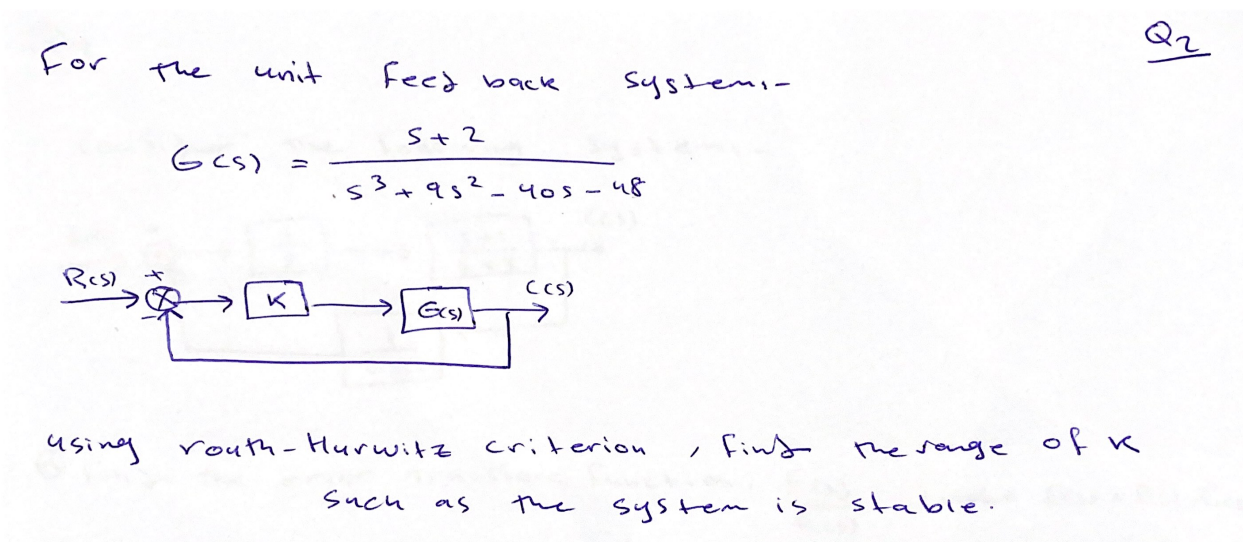 Q2
For the unit feed back system:-
G(s) = s + 2 / s³ + 9s² - 40s - 48
R(s) + - K G(s) C(s)
using routh-Hurwitz criterion, find the range of K
such as the system is stable.